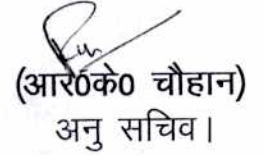 (आर0के0 चौहान)
अनु सचिव।